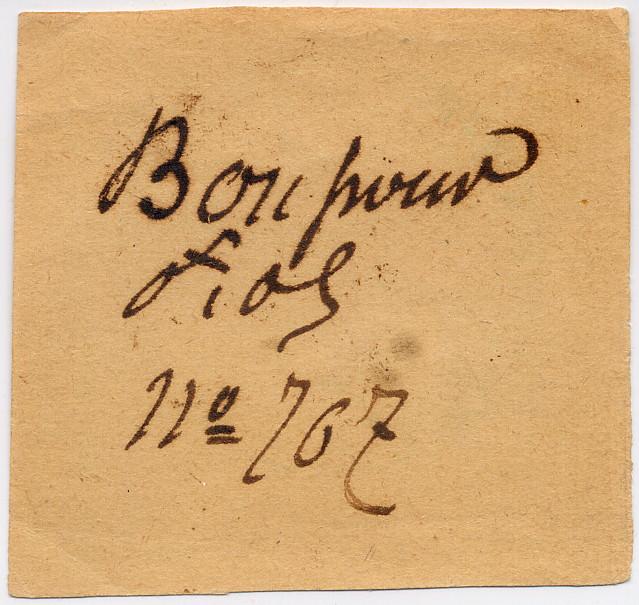 Bon pour
Nº 767